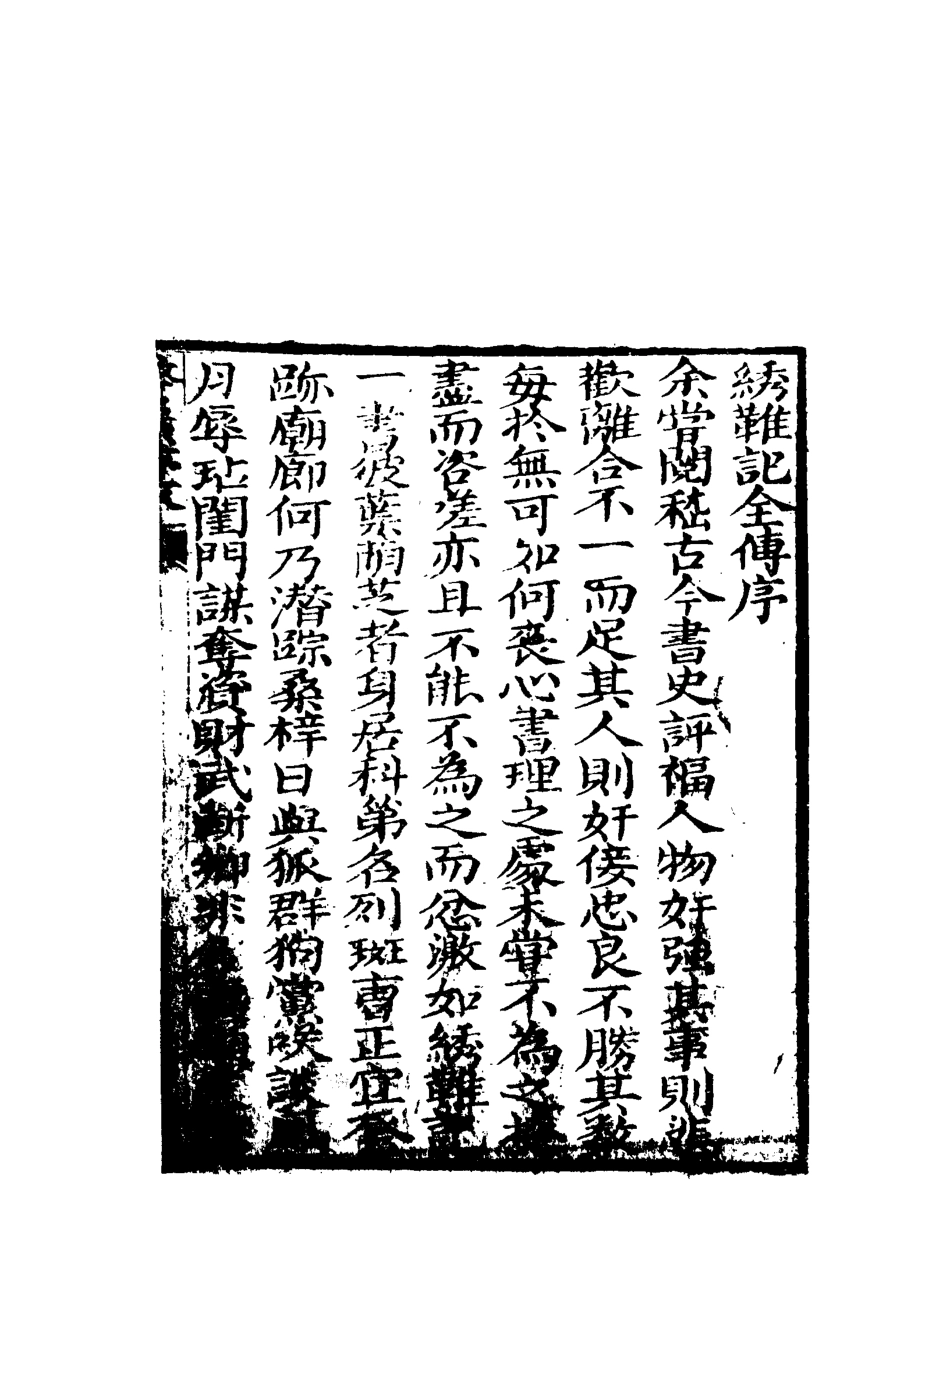 綉鞋記全傳序
余嘗閱稽古今書史評福人物奸強其事則悲
歡離合不一而足其人則奸佞忠良不勝其数
每扵無可如何喪心書理之處未嘗不為之
盡而咨嗟亦且不能不為之而忿激如綉鞋記
一書彼葉蔭芝者身居科第名列班曹正宜登
跡廟廊何乃潜踪桑梓日與狐群狗黨
月辱玷閨門謀奪資財武斷鄉